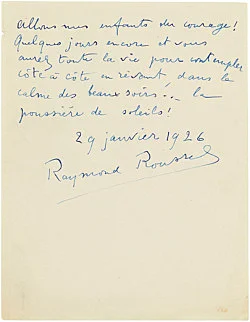 Allons mes enfants du courage!
Quelques jours encore et vous
aurez toute la vie pour contempler
côte à côte en rêvant, dans le
calme des beaux soirs!.. la
poussière de soleils!
29 janvier 1926
Raymond Roussel